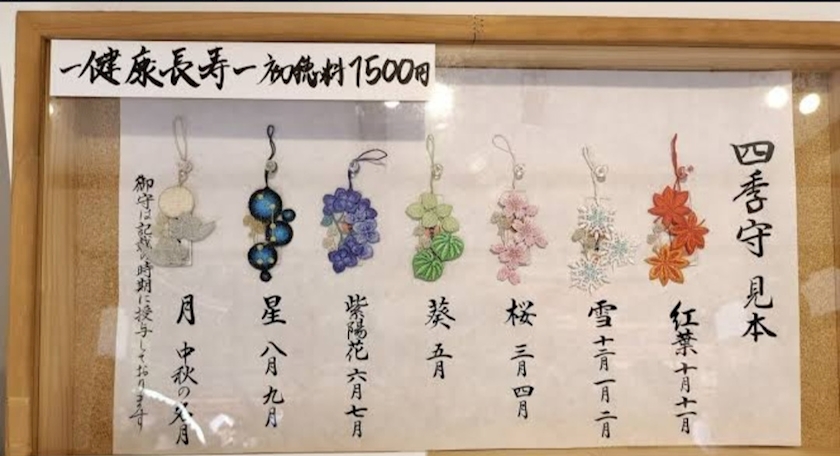 一健康長寿一 初穂料1500円
四季守 見本
紅葉 十月 十一月
雪 十二月 一月 二月
桜 三月 四月
葵 五月
紫陽花 六月 七月
星 八月 九月
月 中秋の名月
御守は記載の時期に授与しております